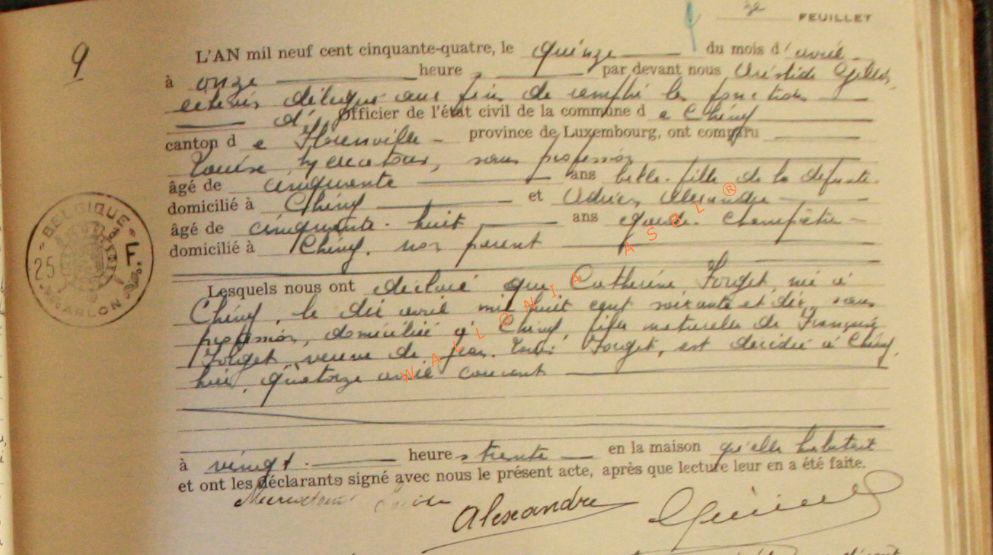 2e FEUILLET
9
L'AN mil neuf cent cinquante-quatre, le quinze du mois d'avril
à onze heures, par devant nous Aristide
échevin délégué aux fins de remplir les fonctions
d' Officier de l'état civil de la commune de Chiny
canton de Florenville province de Luxembourg, ont comparu
Louise, sans profession
âgé de cinquante ans belle-fille de la défunte
domicilié à Chiny et Adrien Alexandre
âgé de cinquante-huit ans garde champêtre
domicilié à Chiny, non parent
Lesquels nous ont déclaré que Catherine Forget, née à
Chiny, le dix avril mil huit cent soixante et dix, sans
profession, domiciliée à Chiny, fille naturelle de Françoise
Forget, veuve de Jean Forget, est décédée à Chiny,
hier, quatorze avril courant
à vingt heures trente en la maison qu'elle habitait
et ont les déclarants signé avec nous le présent acte, après que lecture leur en a été faite.
Alexandre
BELGIQUE
25 F
ARLON
WALLONIA ASBL ®